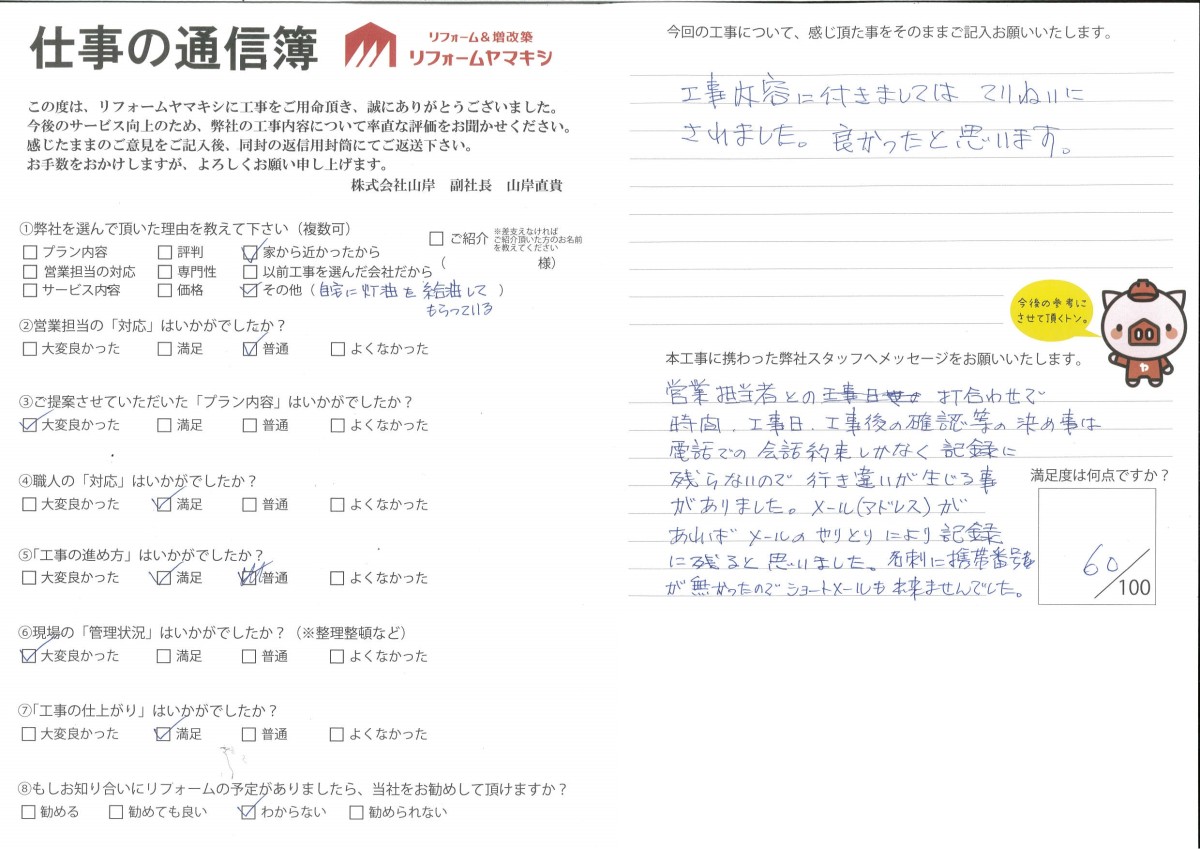 仕事の通信簿
リフォーム&増改築
リフォームヤマキシ
この度は、リフォームヤマキシに工事をご用命頂き、誠にありがとうございました。
今後のサービス向上のため、弊社の工事内容について率直な評価をお聞かせください。
感じたままのご意見をご記入後、同封の返信用封筒にてご返送下さい。
お手数をおかけしますが、よろしくお願い申し上げます。
株式会社山岸 副社長 山岸直貴
①弊社を選んで頂いた理由を教えて下さい(複数可)
□プラン内容 □評判 ☑家から近かったから
□営業担当の対応 □専門性 □以前工事を選んだ会社だから
□サービス内容 □価格 ☑その他(自宅に灯油を給油して)
もらっている
□ご紹介 ※差支えなければ
ご紹介頂いた方のお名前
を教えてください
( 様)
②営業担当の「対応」はいかがでしたか?
□大変良かった □満足 ☑普通 □よくなかった
③ご提案させていただいた「プラン内容」はいかがでしたか?
☑大変良かった □満足 □普通 □よくなかった
④職人の「対応」はいかがでしたか?
□大変良かった ☑満足 □普通 □よくなかった
⑤「工事の進め方」はいかがでしたか?
□大変良かった ☑満足 □普通 □よくなかった
⑥現場の「管理状況」はいかがでしたか?(※整理整頓など)
☑大変良かった □満足 □普通 □よくなかった
⑦「工事の仕上がり」はいかがでしたか?
□大変良かった ☑満足 □普通 □よくなかった
⑧もしお知り合いにリフォームの予定がありましたら、当社をお勧めして頂けますか?
□勧める □勧めても良い ☑わからない □勧められない
今回の工事について、感じ頂た事をそのままご記入お願いいたします。
工事内容に付きましては ていねいに
されました。良かったと思います。
今後の参考に
させて頂くトン。
ヤ
本工事に携わった弊社スタッフへメッセージをお願いいたします。
営業担当者との工事日 打合わせで
時間、工事日、工事後の確認等の決め事は
電話での会話約束しかなく記録に
残らないので行き違いが生じる事
がありました。メール(アドレス)が
あればメールのやりとりにより記録
に残ると思いました。名刺に携帯番号
が無かったのでショートメールも出来ませんでした。
満足度は何点ですか?
60/100